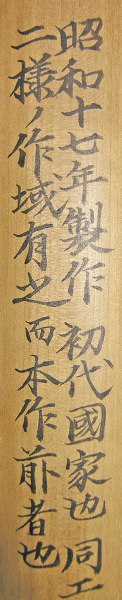 昭和十七年製作 初代國家也 同工
二様ノ作域有之 而本作前者也